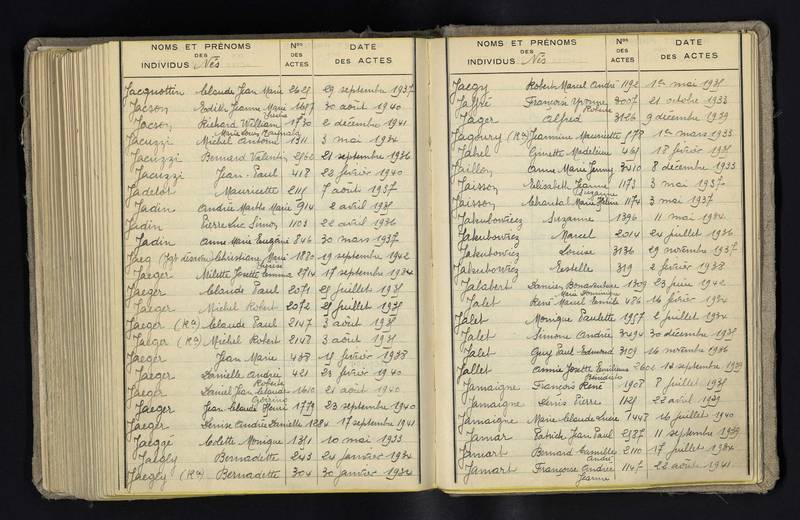 NOMS ET PRÉNOMS
DES
INDIVIDUS Nés
Nos
DES
ACTES
DATE
DES ACTES
Jacquottin Claude Jean Marie 2625 29 septembre 1937
Jacson Edith Jeanne Marie 1687 30 août 1940
Jacson Richard William 1730 2 décembre 1941
Jacuzzi Michel Antoine 1311 3 mai 1934
Jacuzzi Bernard Valentin 2560 21 septembre 1936
Jacuzzi Jean Paul 418 22 février 1940
Jadelot Mauricette 2115 7 août 1937
Jadin Andrée Marthe Marie 914 2 avril 1935
Jadin Pierre Luc Simon 1103 22 avril 1936
Jadin Anne Marie Eugénie 846 30 mars 1937
Jaeg Christiane Marie 1880 19 septembre 1942
Jaeger Milette Josette Emma 2714 17 septembre 1934
Jaeger Claude Paul 2071 25 juillet 1935
Jaeger Michel Robert 2072 25 juillet 1935
Jaeger (Ra) Claude Paul 2147 3 août 1935
Jaeger (Ra) Michel Robert 2148 3 août 1935
Jaeger Jean Marie 488 15 février 1938
Jaeger Danielle Andrée 421 23 février 1940
Jaeger Daniel Jean Claude 1610 21 août 1940
Jaeger Jean Claude Henri 1779 23 septembre 1940
Jaeger Denise Andrée Danielle 1284 17 septembre 1941
Jaeggé Colette Monique 1351 10 mai 1933
Jaegly Bernadette 243 24 janvier 1934
Jaegly (Ra) Bernadette 304 30 janvier 1934
NOMS ET PRÉNOMS
DES
INDIVIDUS Nés
Nos
DES
ACTES
DATE
DES ACTES
Jaegy Robert Marcel André 1192 1er mai 1935
Jaffré Françoise Yvonne 3007 21 octobre 1933
Jager Alfred 3126 9 décembre 1939
Jagoury (Ra) Jeannine Mauricette 578 1er mars 1933
Jahel Ginette Madeleine 461 18 février 1935
Jaillon Anne Marie Jenny 3410 8 décembre 1933
Jaisson Elisabeth Jeanne 1173 3 mai 1937
Suzanne
Jaisson Chantal Marie Hélène 1174 3 mai 1937
Jakubowicz Suzanne 1396 11 mai 1934
Jakubowicz Marcel 2014 24 juillet 1936
Jakubowicz Louise 3136 29 novembre 1937
Jakubowicz Estelle 319 2 février 1938
Jalabert Damien Bonaventure 1309 23 juin 1942
Marie Dominique
Jalet René Marcel Emile 486 16 février 1934
Jalet Monique Paulette 1957 2 juillet 1934
Jalet Simone Andrée 3494 30 décembre 1935
Jalet Guy Paul Edmond 3109 16 novembre 1936
Jallet Annie Josette Emilienne 2602 14 septembre 1939
Jamaigne François René 1908 8 juillet 1935
Jamaigne Denis Pierre 1125 22 avril 1939
Jamaigne Marie Claude Lucie 1448 16 juillet 1940
Jamar Patrick Jean Paul 2587 11 septembre 1939
Jamart Bernard Camille 2110 17 juillet 1934
André
Jamart Françoise Andrée 1147 22 août 1941
Jeanne